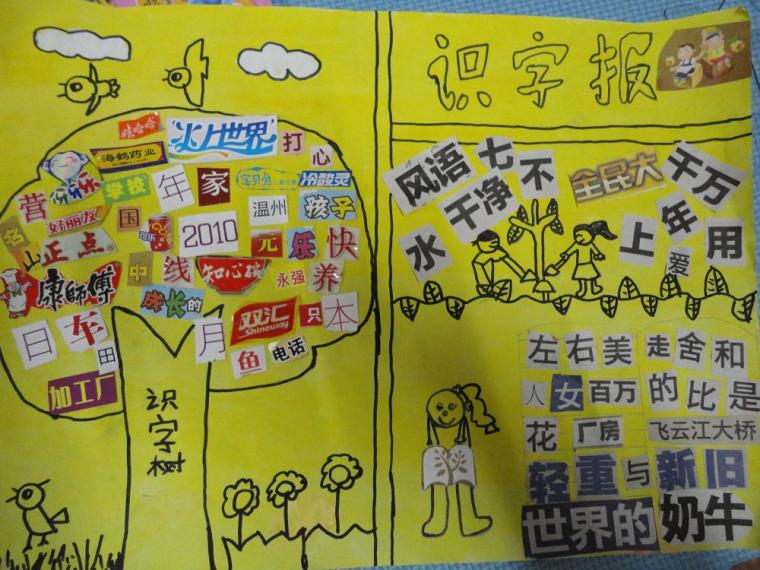 识字报
娃哈哈
火上世界
打
心
海鹤药业
份乐
学校
年
家
宝贝兔
冷酸灵
营
好朋友
国
可乐
2010
温州
孩子
名
山
正点
中
线
知心
元
乐
快
康師傅
成长的
永强
养
双汇
Shineway
只
本
日
车
田
月
鱼
电话
加工厂
识字树
风语
七
不
干净
水
全民大
千万
年
上
爱
用
左右美
走舍和
人
女
百万
的比是
花
厂房
飞云江大桥
轻重与新旧
世界的
奶牛